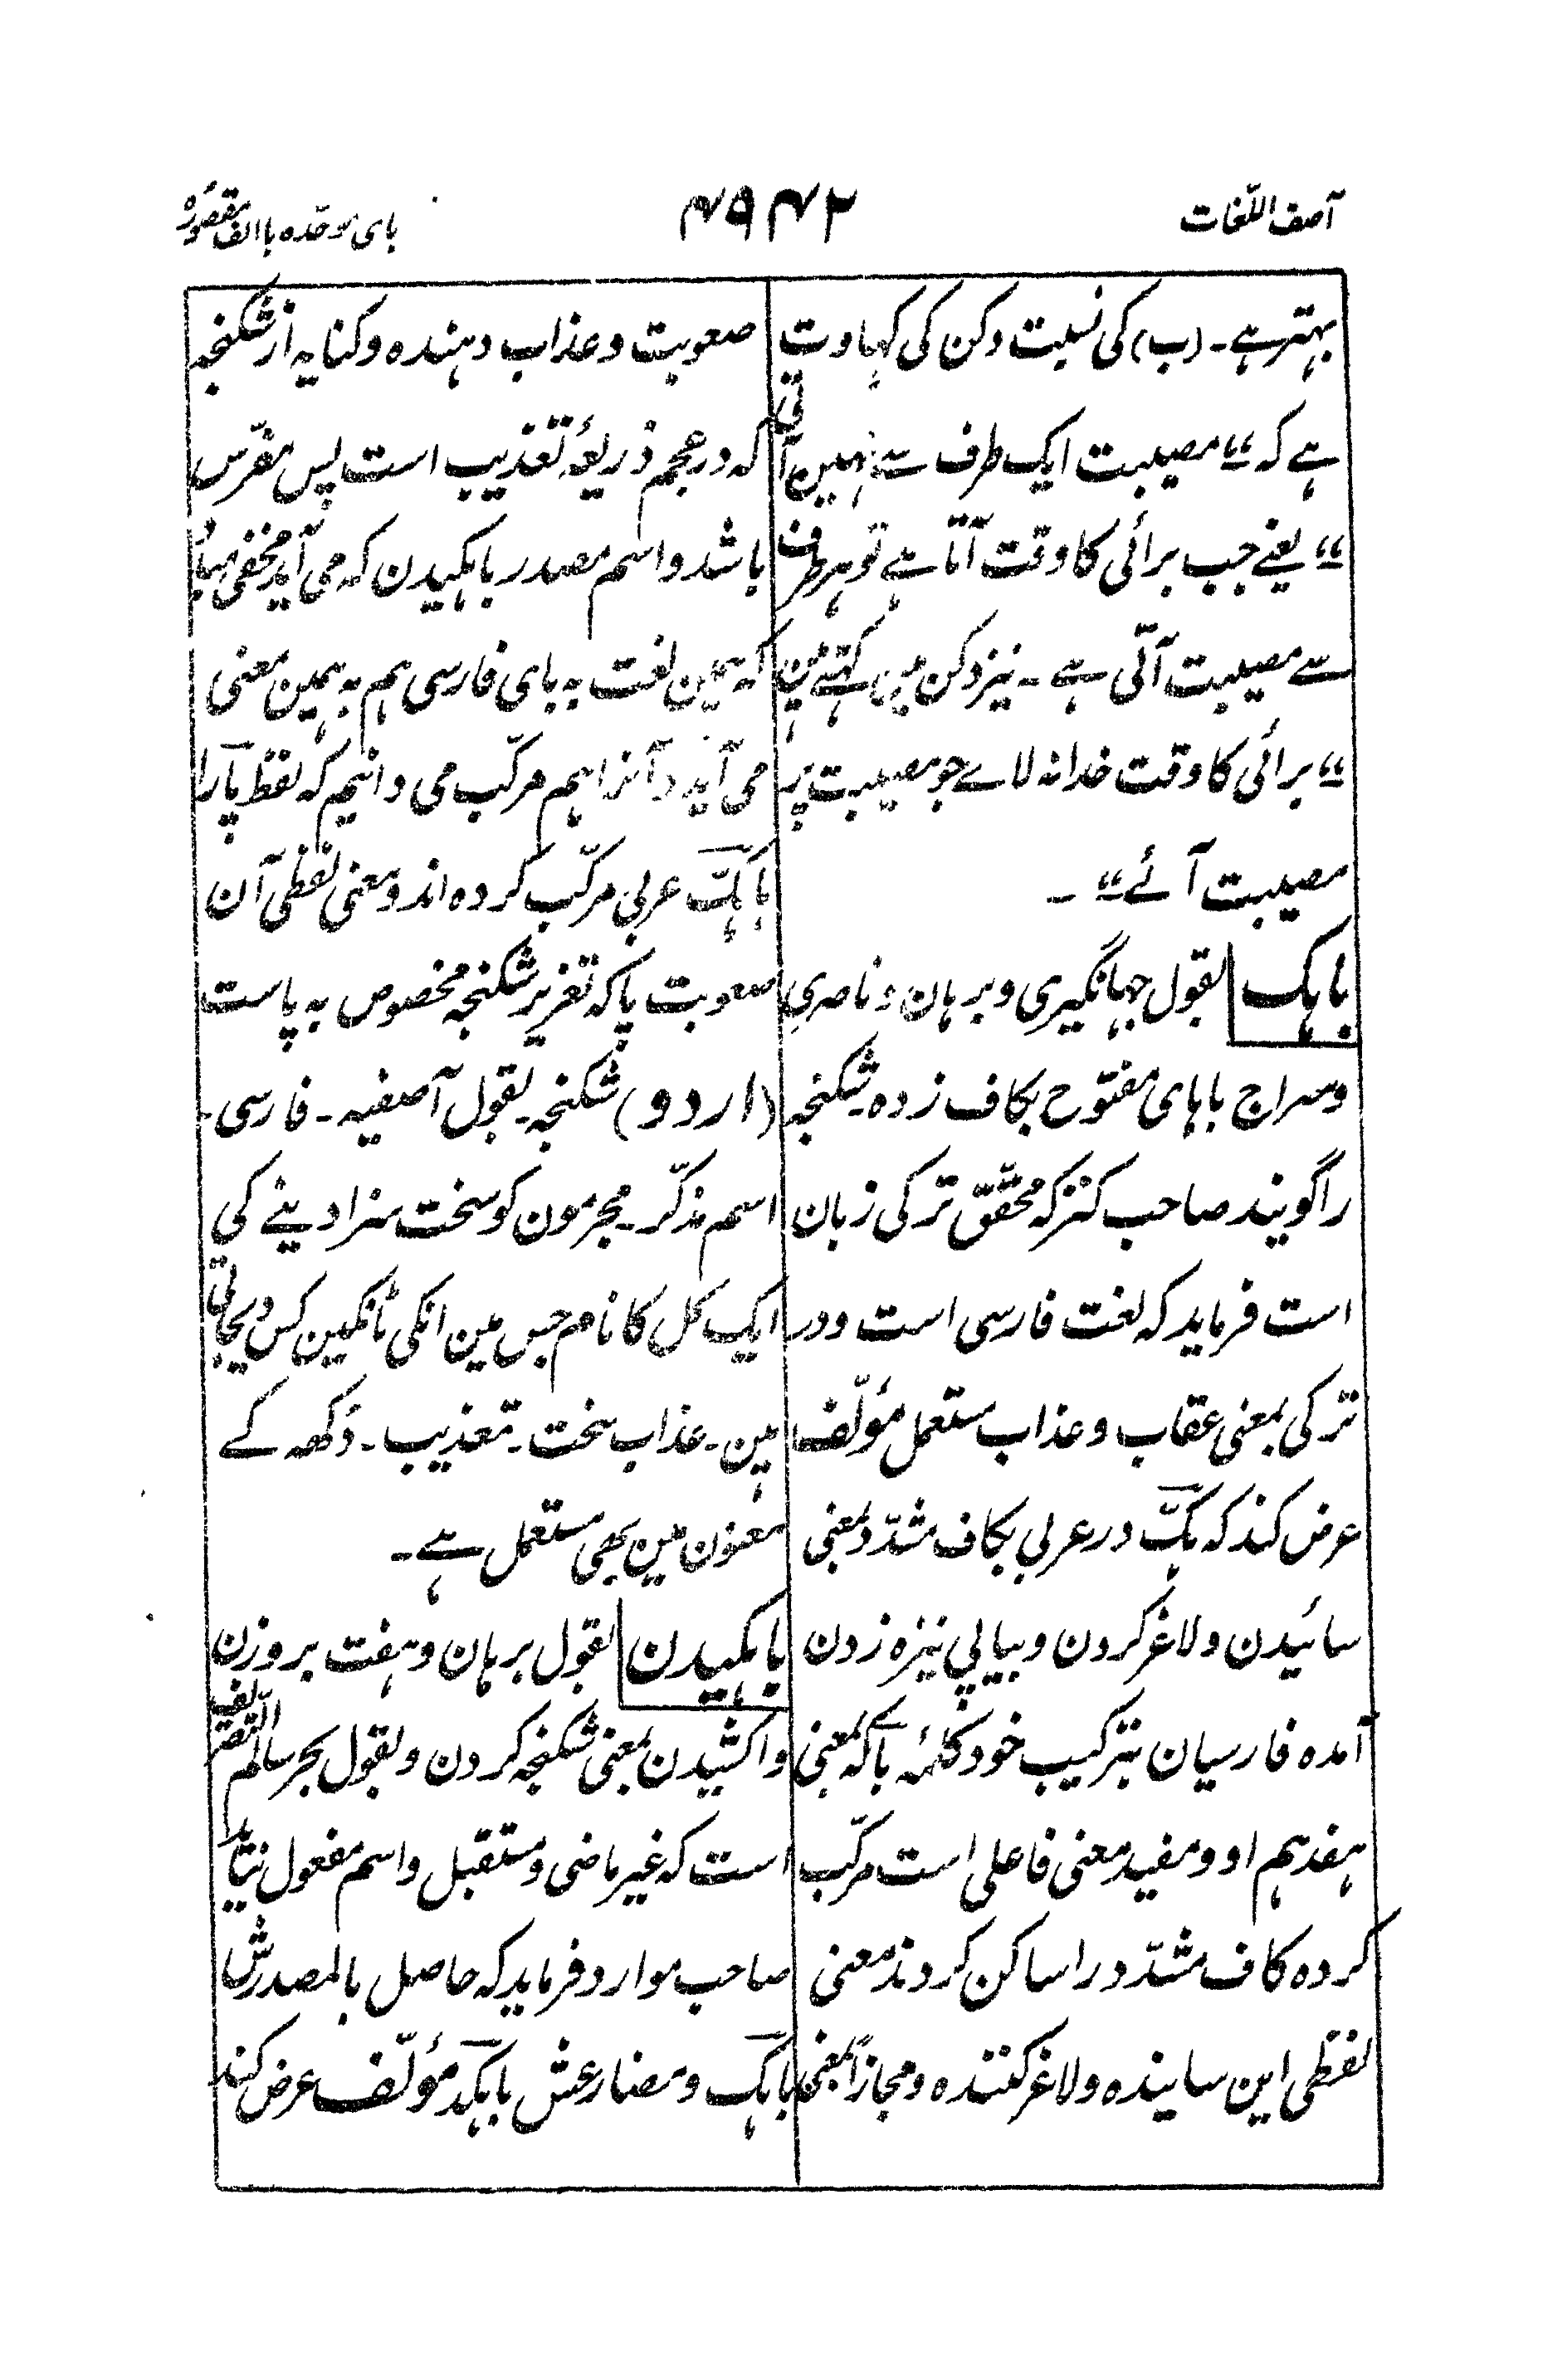 آصف اللّغات
۴۹۴۲
بای موحّدہ باالف مقصورہ
بہتر ہے ۔ (ب) کی نسبت دکن کی کہاوت
ہے کہ ”مصیبت ایک طرف سے نہیں آتی
“ یعنے جب برائی کا وقت آتا ہے تو ہر طرف
سے مصیبت آتی ہے ۔ نیز دکن میں کہتے ہیں
”برائی کا وقت خدا نہ لاے جو مصیبت پر
مصیبت آئے“ ۔
باہک بقول جہانگیری و برہان و ناصری
و سراج باہای مفتوح بکاف زدہ ۔ شکنجہ
را گویند صاحب کنز کہ محقّق ترکی زبان
است فرماید کہ لغت فارسی است و در
ترکی بمعنی عقاب و عذاب مستعمل مؤلّف
عرض کند کہ ہکّ در عربی بکاف مشدّد بمعنی
سائیدن و لاغر کردن و پیاپی نیزہ زدن
آمدہ فارسیان بترکیب خود کلمۂ با کہ بمعنی
ہفدہم او و مفید معنی فاعلی است مرکّب
کردہ کاف مشدّد را ساکن کردند معنی
لفظی این سایندہ و لاغر کنندہ و مجازاً بمعنی
صعوبت و عذاب دہندہ و کنایہ از شکنجہ
کہ در عجم ذریعۂ تعذیب است پس مفرّس
باشد و اسم مصدر باہکیدن کہ می آید مخفی مباد
کہ ہمین لغت بہ بای فارسی ہم بہ ہمین معنی
می آید و آنرا ہم مرکّب می دانیم کہ لفظ پا را
با ہکّ عربی مرکّب کردہ اند و معنی لفظی آن
صعوبت پا کہ تعزیر شکنجہ مخصوص بہ پاست
(اردو) شکنجہ ۔ بقول آصفیہ ۔ فارسی ۔
اسم مذکّر ۔ مجرمون کو سخت سزا دینے کی
ایک کل کا نام جس مین انکی ٹانگین کس دیجاتی
ہین ۔ عذاب سخت ۔ تعذیب ۔ دُکھ کے
معنون مین بھی مستعمل ہے ۔
باہکیدن بقول برہان و ہفت بر وزن
واکشیدن بمعنی شکنجہ کردن و بقول بحر سالم التّصریف
است کہ غیر ماضی و مستقبل و اسم مفعول نیاید
صاحب موارد فرماید کہ حاصل بالمصدرش
باہک و مضارعش باہکد مؤلّف عرض کند